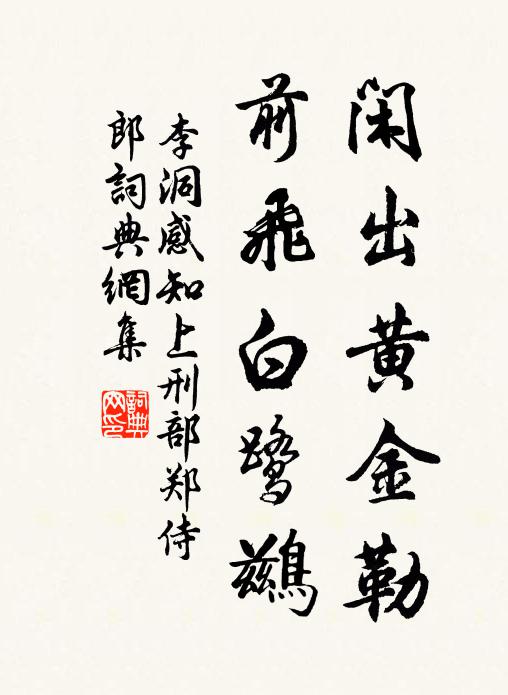 闲出黄金勒
前飛白鷺鷀
李洞感知上刑部郑侍
郎詞典網集
詞典网印